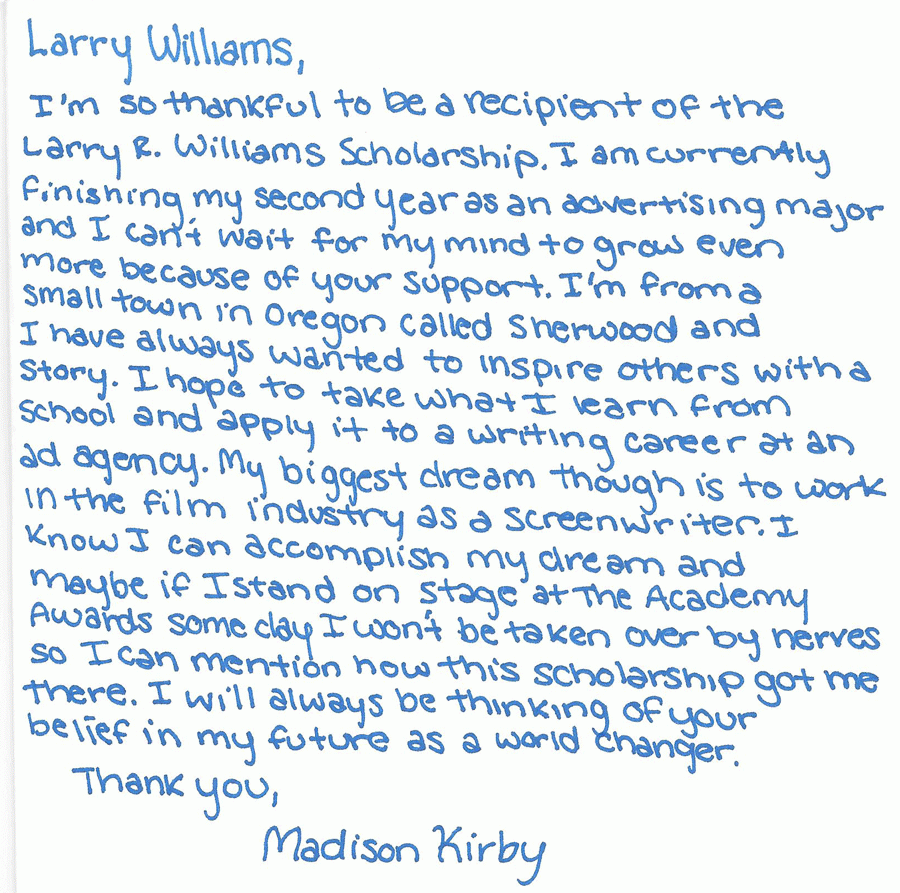 Larry Williams,
I'm so thankful to be a recipient of the
Larry R. Williams Scholarship. I am currently
finishing my second year as an advertising major
and I can't wait for my mind to grow even
more because of your support. I'm from a
small town in Oregon called Sherwood and
I have always wanted to inspire others with a
story. I hope to take what I learn from
school and apply it to a writing career at an
ad agency. My biggest dream though is to work
in the film industry as a screenwriter. I
know I can accomplish my dream and
maybe if I stand on stage at The Academy
Awards some day I won't be taken over by nerves
so I can mention how this scholarship got me
there. I will always be thinking of your
belief in my future as a world changer.
Thank you,
Madison Kirby